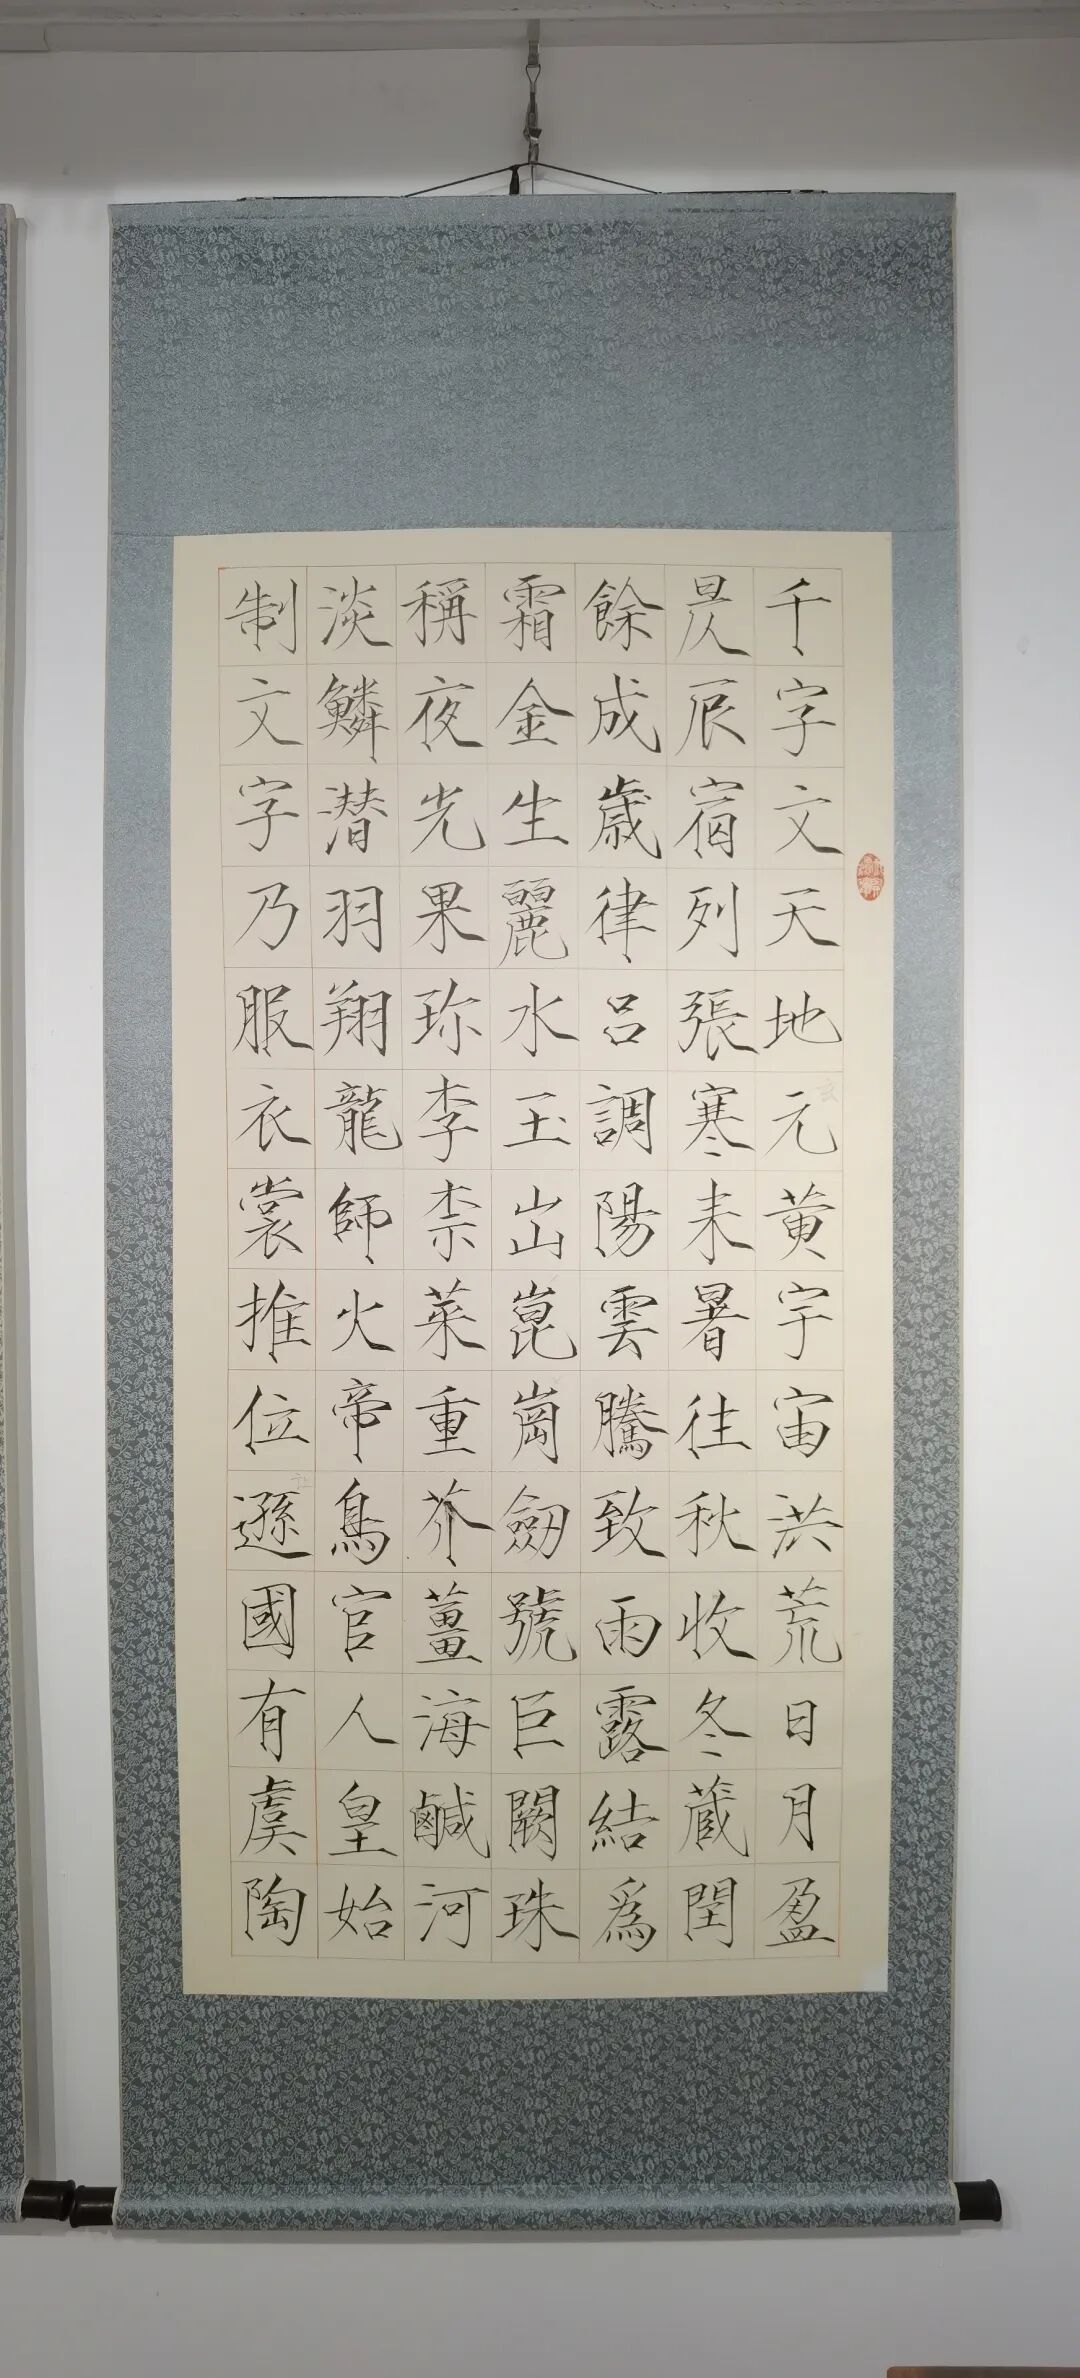 千字文天地元黄宇宙洪荒日月盈
昃辰宿列張寒来暑往秋收冬蔵閏
餘成歳律吕調陽雲騰致雨露結為
霜金生麗水玉出崑崗劒號巨闕珠
稱夜光果珎李柰菜重芥薑海鹹河
淡鱗潛羽翔龍師火帝鳥官人皇始
制文字乃服衣裳推位遜國有虞陶